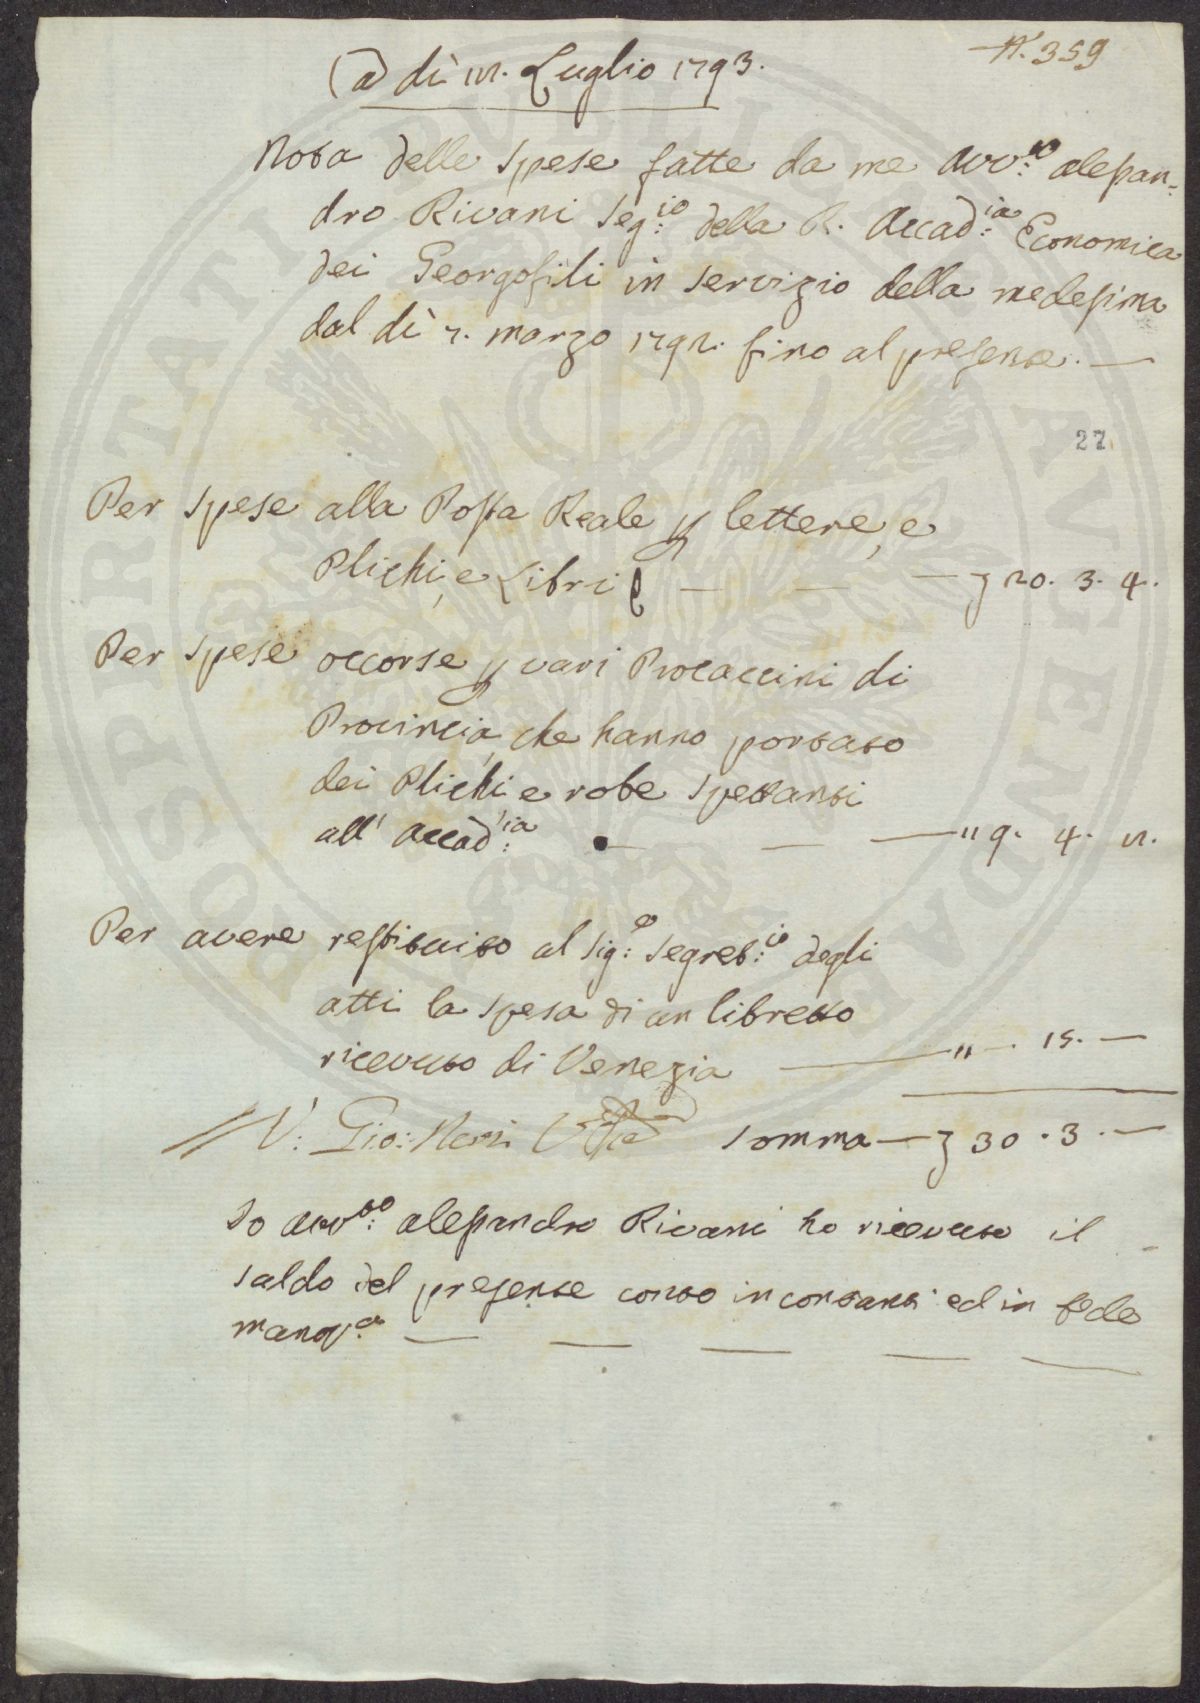 N. 359
(a dì 12. Luglio 1793.
Nota delle spese fatte da me Avv:to Alessan-
dro Rivani Seg:io della R. Accad:ia Economica
dei Georgofili in servizio della medesima
dal dì 7. marzo 1792. fino al presente. —
27
Per spese alla Posta Reale p lettere, e
Plichi, e Libri — — — 20. 3. 4.
Per spese occorse p vari Procaccini di
Provincia, che hanno portato
dei Plichi e robe spettanti
all' Accad:ia — — — " 9. 4. 2.
Per avere restituito al Sig:e Segret:io degli
atti la spesa di un libretto
ricevuto di Venezia — " — . 15. —
V: Gio: Neri Somma — 30. 3. —
Io Avv:to Alessandro Rivani ho ricevuto il
saldo del presente conto in contanti ed in fede
mano p:a — — — — —